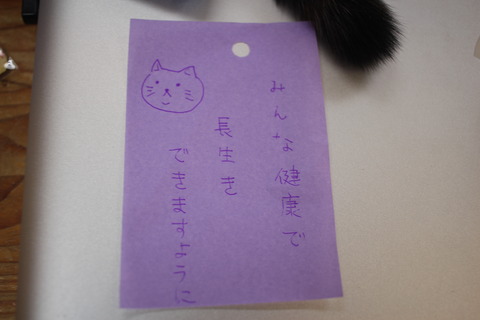 みんな健康で
長生き
できますように